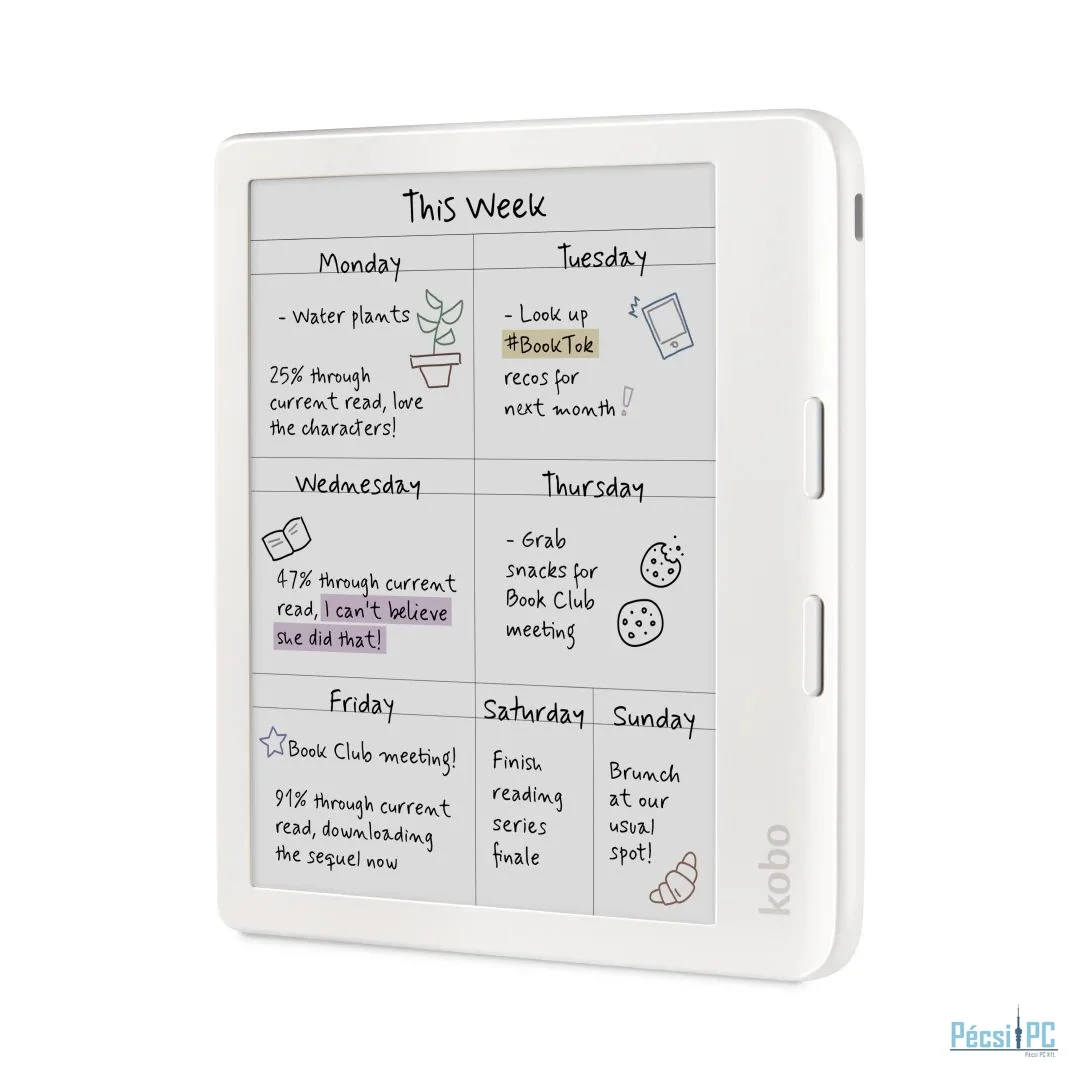 This Week
Monday
- Water plants
25% through
current read, love
the characters!
Tuesday
- Look up
#BookTok
recos for
next month!
Wednesday
47% through current
read, I can't believe
she did that!
Thursday
- Grab
snacks for
Book Club
meeting
Friday
Book Club meeting!
91% through current
read, downloading
the sequel now
Saturday
Finish
reading
series
finale
Sunday
Brunch
at our
usual
spot!
kobo
Pécsi PC
Pécsi PC Kft.